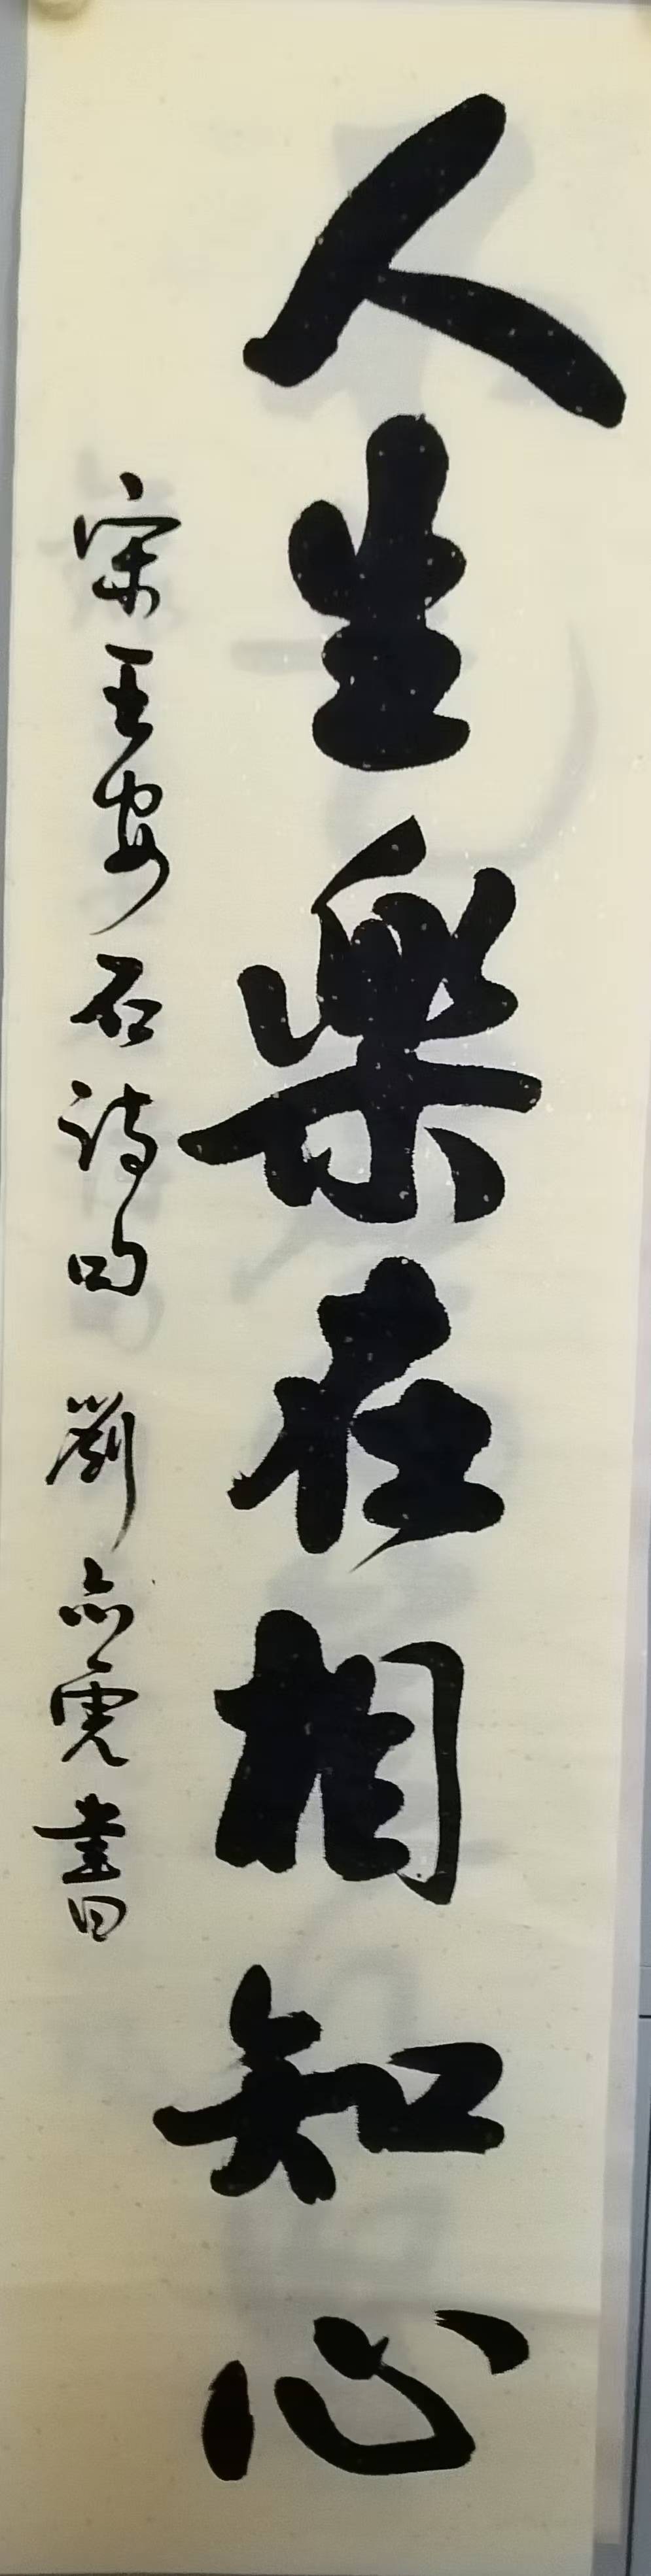 人生樂在相知心
宋王安石诗句 劉亦雲書